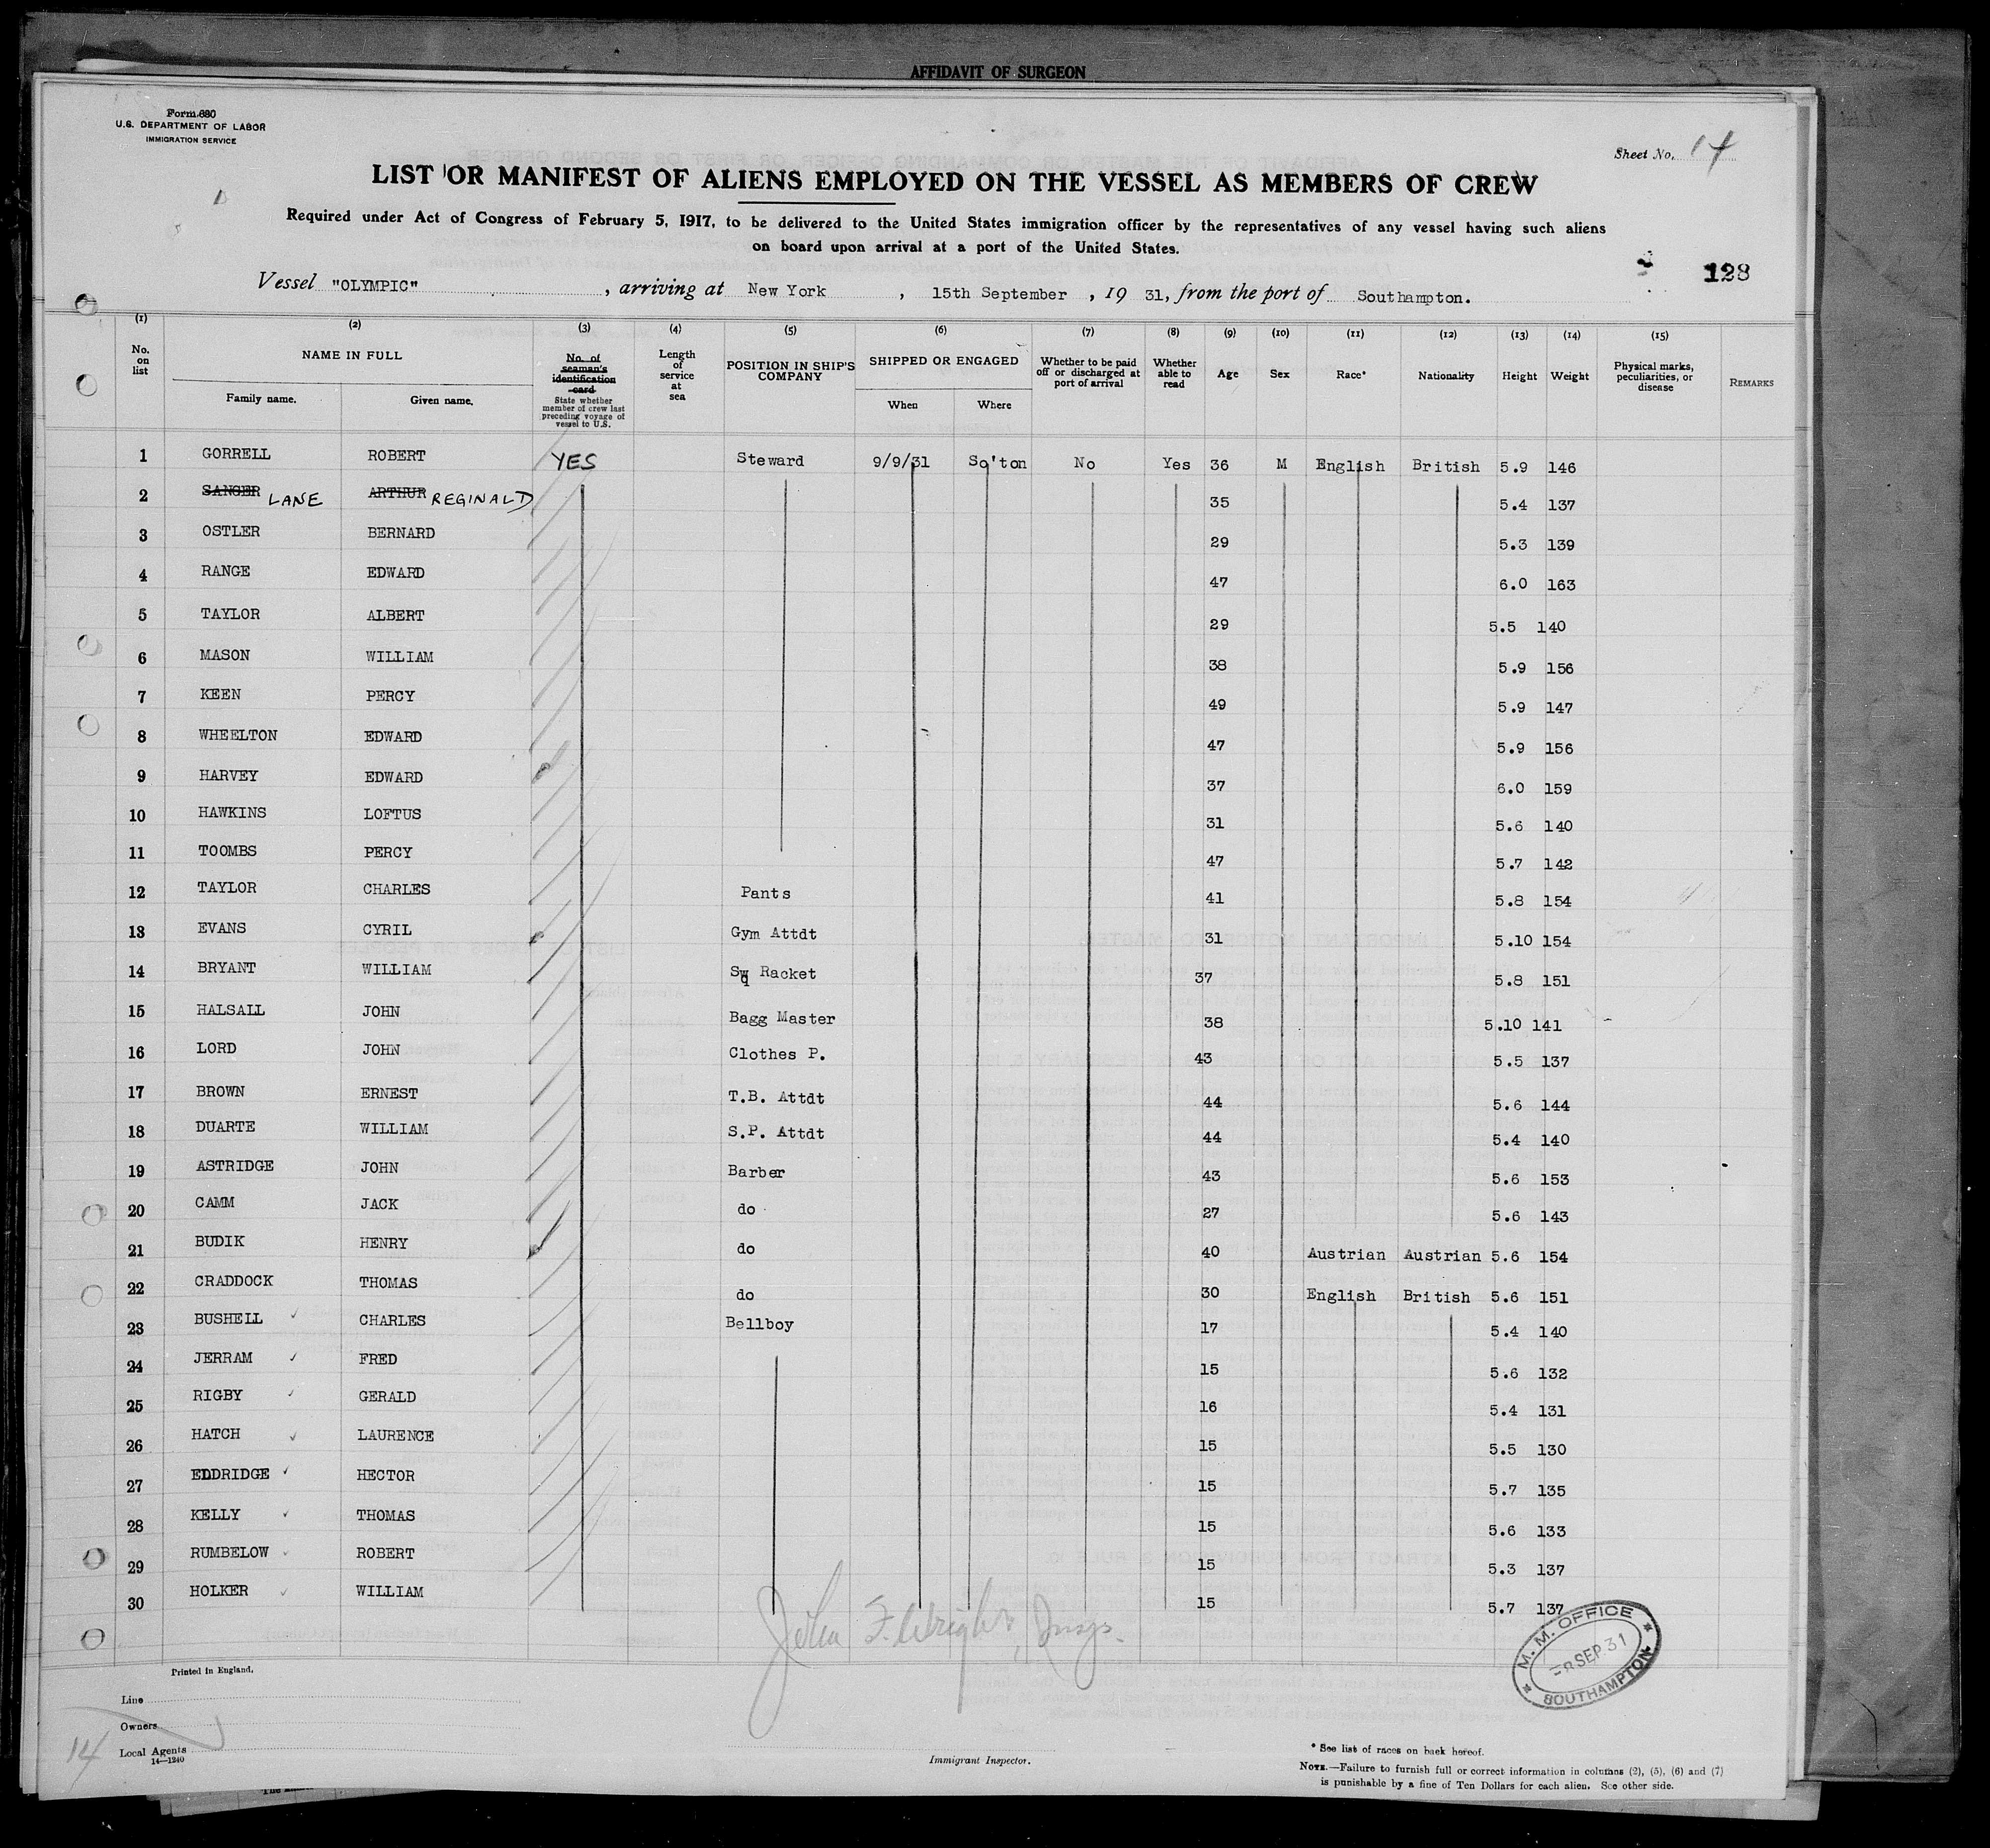 AFFIDAVIT OF SURGEON
Form 680
U.S. DEPARTMENT OF LABOR
IMMIGRATION SERVICE
Sheet No. 14
LIST OR MANIFEST OF ALIENS EMPLOYED ON THE VESSEL AS MEMBERS OF CREW
Required under Act of Congress of February 5, 1917, to be delivered to the United States immigration officer by the representatives of any vessel having such aliens
on board upon arrival at a port of the United States.
128
Vessel "OLYMPIC", arriving at New York, 15th September, 19 31, from the port of Southampton.
(1) (2) (3) (4) (5) (6) (7) (8) (9) (10) (11) (12) (13) (14) (15)
No. on list
NAME IN FULL
Family name. Given name.
No. of seaman's identification card
State whether member of crew last preceding voyage of vessel to U.S.
Length of service at sea
POSITION IN SHIP'S COMPANY
SHIPPED OR ENGAGED
When Where
Whether to be paid off or discharged at port of arrival
Whether able to read
Age
Sex
Race*
Nationality
Height
Weight
Physical marks, peculiarities, or disease
REMARKS
1 GORRELL ROBERT YES Steward 9/9/31 So'ton No Yes 36 M English British 5.9 146
2 SANGER LANE ARTHUR REGINALD 35 5.4 137
3 OSTLER BERNARD 29 5.3 139
4 RANGE EDWARD 47 6.0 163
5 TAYLOR ALBERT 29 5.5 140
6 MASON WILLIAM 38 5.9 156
7 KEEN PERCY 49 5.9 147
8 WHEELTON EDWARD 47 5.9 156
9 HARVEY EDWARD 37 6.0 159
10 HAWKINS LOFTUS 31 5.6 140
11 TOOMBS PERCY 47 5.7 142
12 TAYLOR CHARLES Pants 41 5.8 154
13 EVANS CYRIL Gym Attdt 31 5.10 154
14 BRYANT WILLIAM Sq Racket 37 5.8 151
15 HALSALL JOHN Bagg Master 38 5.10 141
16 LORD JOHN Clothes P. 43 5.5 137
17 BROWN ERNEST T.B. Attdt 44 5.6 144
18 DUARTE WILLIAM S.P. Attdt 44 5.4 140
19 ASTRIDGE JOHN Barber 43 5.6 153
20 CAMM JACK do 27 5.6 143
21 BUDIK HENRY do 40 Austrian Austrian 5.6 154
22 CRADDOCK THOMAS do 30 English British 5.6 151
23 BUSHELL CHARLES Bellboy 17 5.4 140
24 JERRAM FRED 15 5.6 132
25 RIGBY GERALD 16 5.4 131
26 HATCH LAURENCE 15 5.5 130
27 ELDRIDGE HECTOR 15 5.7 135
28 KELLY THOMAS 15 5.6 133
29 RUMBELOW ROBERT 15 5.3 137
30 HOLKER WILLIAM 15 5.7 137
John F. Wright, Insp.
M. M. OFFICE
8 SEP 31
SOUTHAMPTON
Printed in England.
Line
Owners
Local Agents
14—1240
14
Immigrant Inspector.
* See list of races on back hereof.
NOTE.—Failure to furnish full or correct information in columns (2), (5), (6) and (7)
is punishable by a fine of Ten Dollars for each alien. See other side.